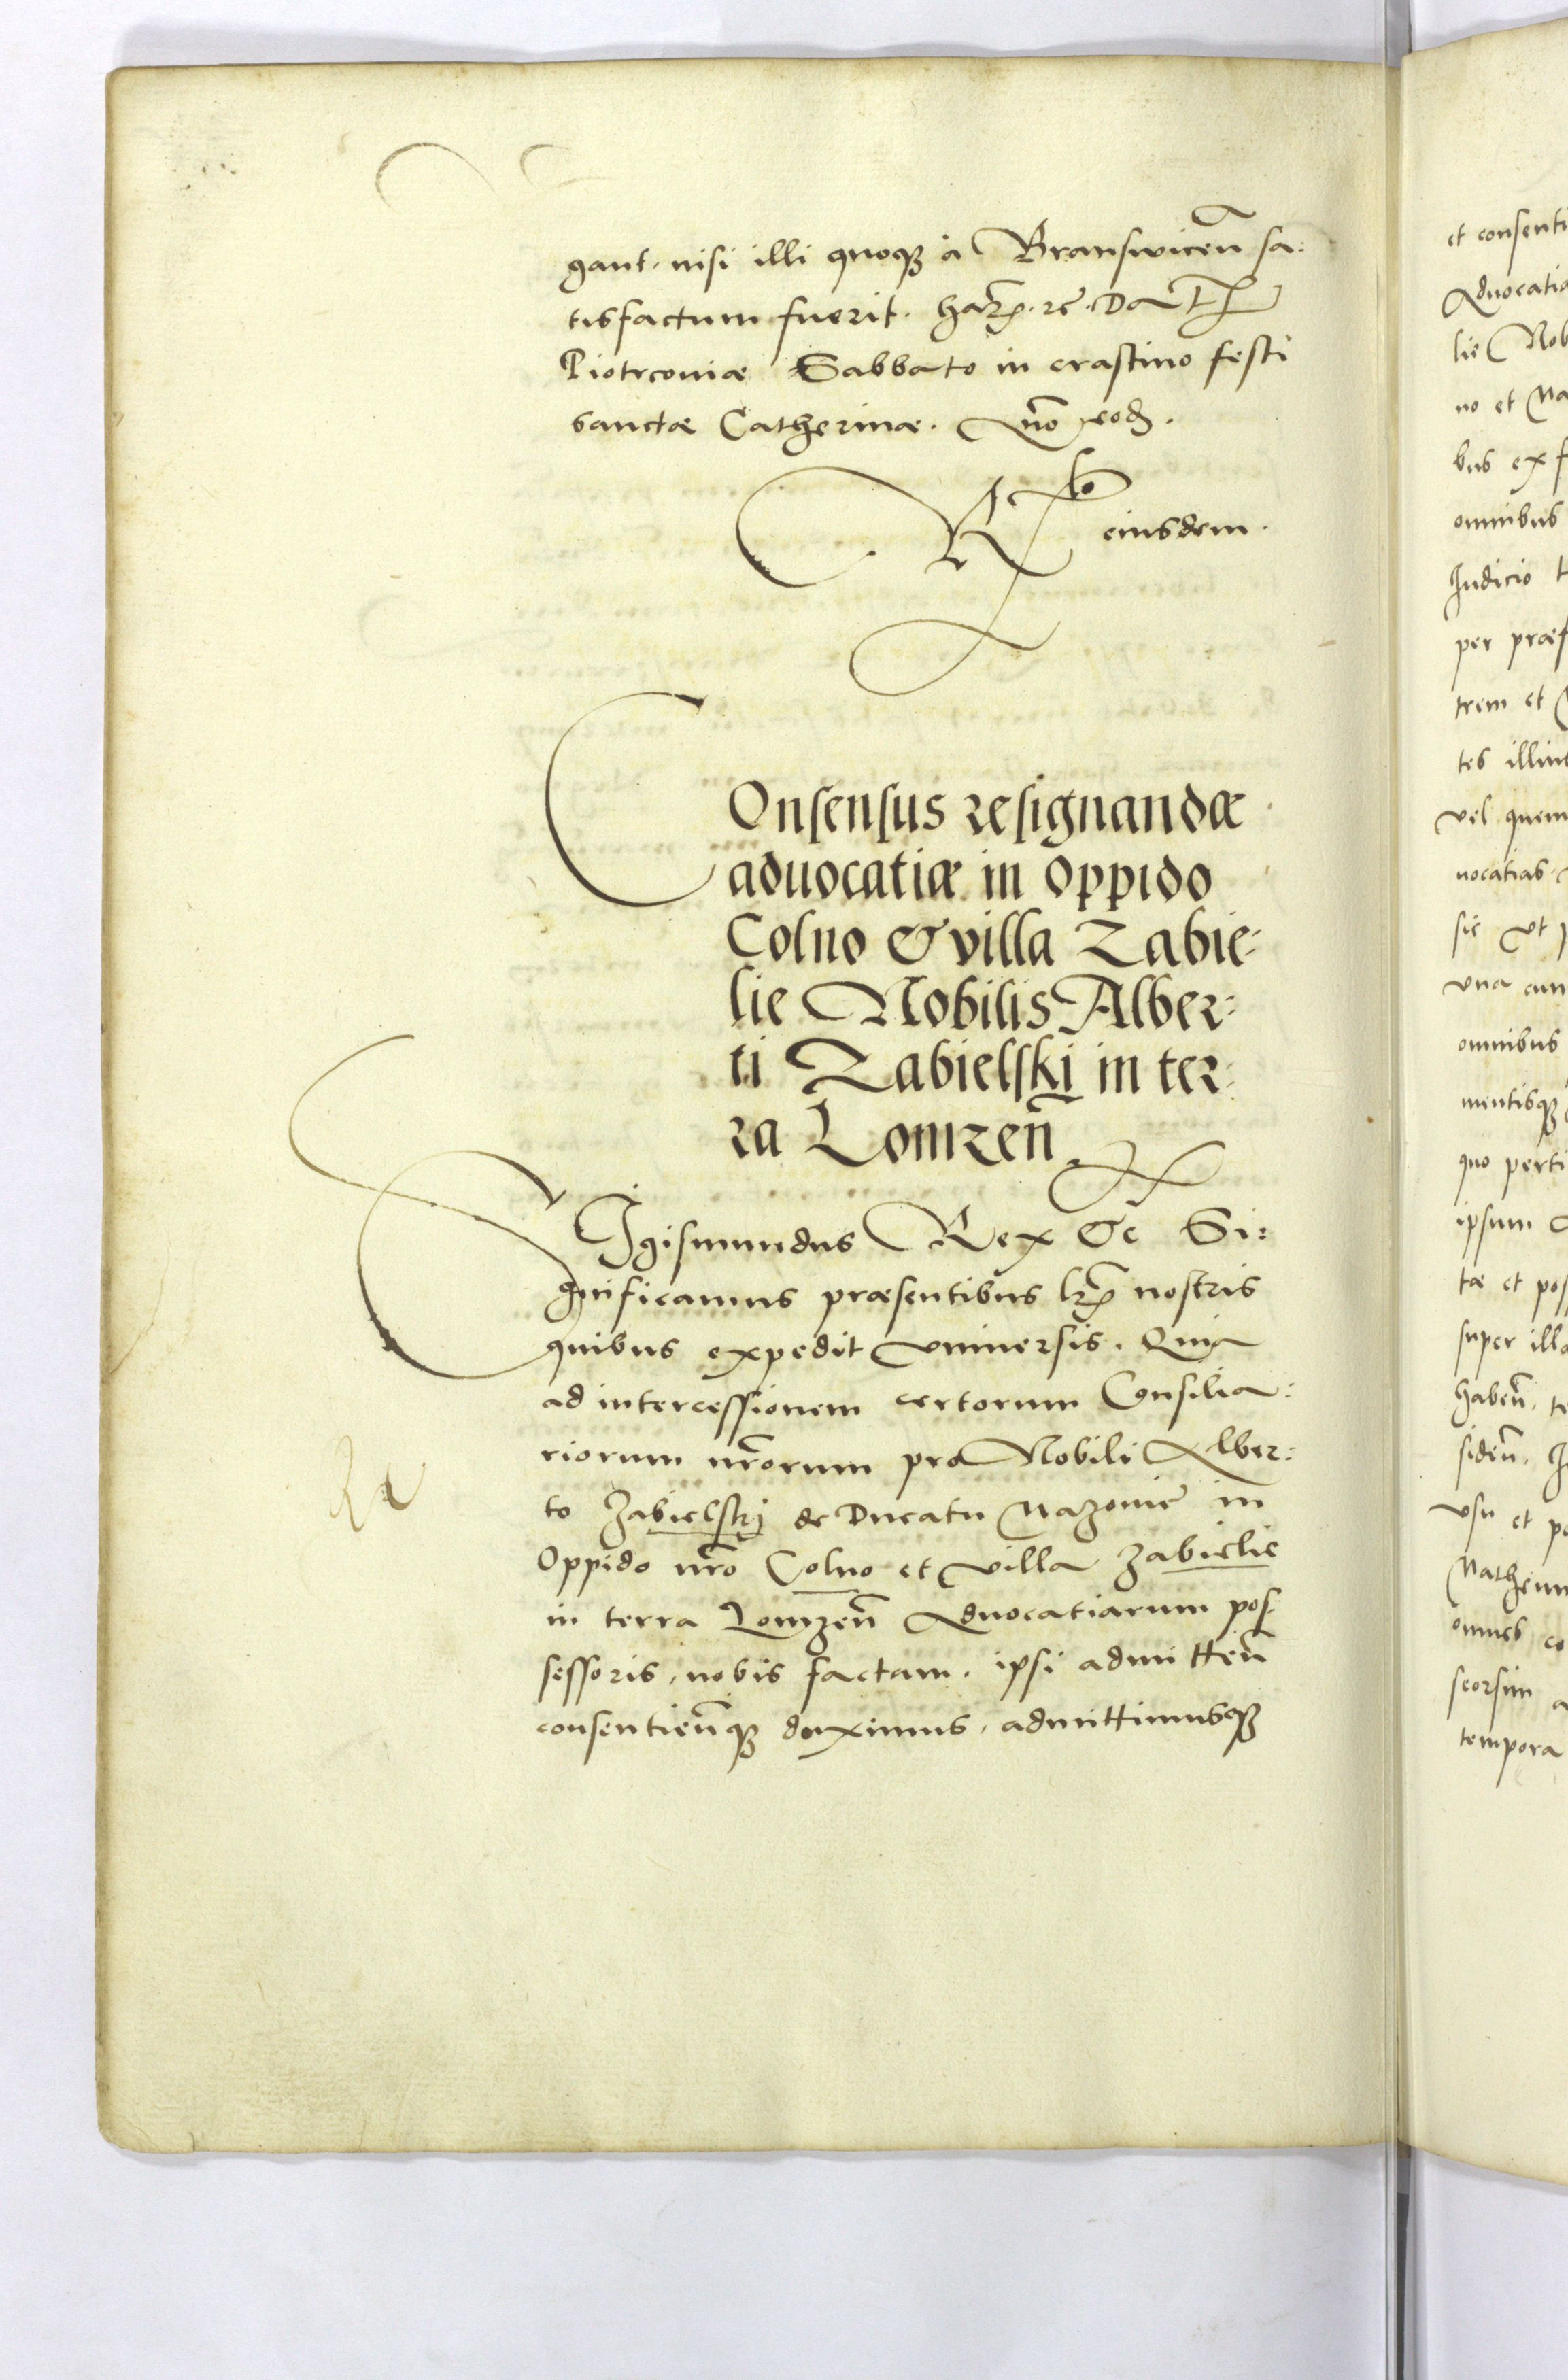 gant. nisi illi quoqȝ à Branswiceñ sa:
tisfactum fuerit. harꝝ. rc. Dat
Piotrcoviæ Sabbato in crastino festi
sanctæ Catherinæ. Año eod.
Rᵒ eiusdem.
COnsensus resignandæ
aduocatiæ in oppido
Colno & villa Zabie-
lie Nobilis Alber-
ti Zabielski in ter-
ra Lomzeñ.
SIgismundus Rex &c Si:
gnificamus præsentibus lrĩs nostris
quibus expedit vniuersis. Quia
ad intercessionem certorum Consilia:
riorum nrõrum pro Nobili Alber:
to Zabielskj de Ducatu Mazovie in
Oppido nrõ Colno et villa Zabielie
in terra Lomzeñ Aduocatiarum pos
sessoris, nobis factam. ipsi admitteñ
consentieñqȝ duximus, admittimusqȝ
et consenti
Aduocatia
lie Nob
no et Ma
bus ex f
omnibus
Iudicio t
per præf
trem et
tes illius
vel quem
uocatias
sic vt p
vna cum
omnibus
mentisqȝ
quo perti
ipsum
tæ et pos
super illa
habeñ. te
sideñ.
vsu et pe
Mathe
omnes co
seorsim a
tempora